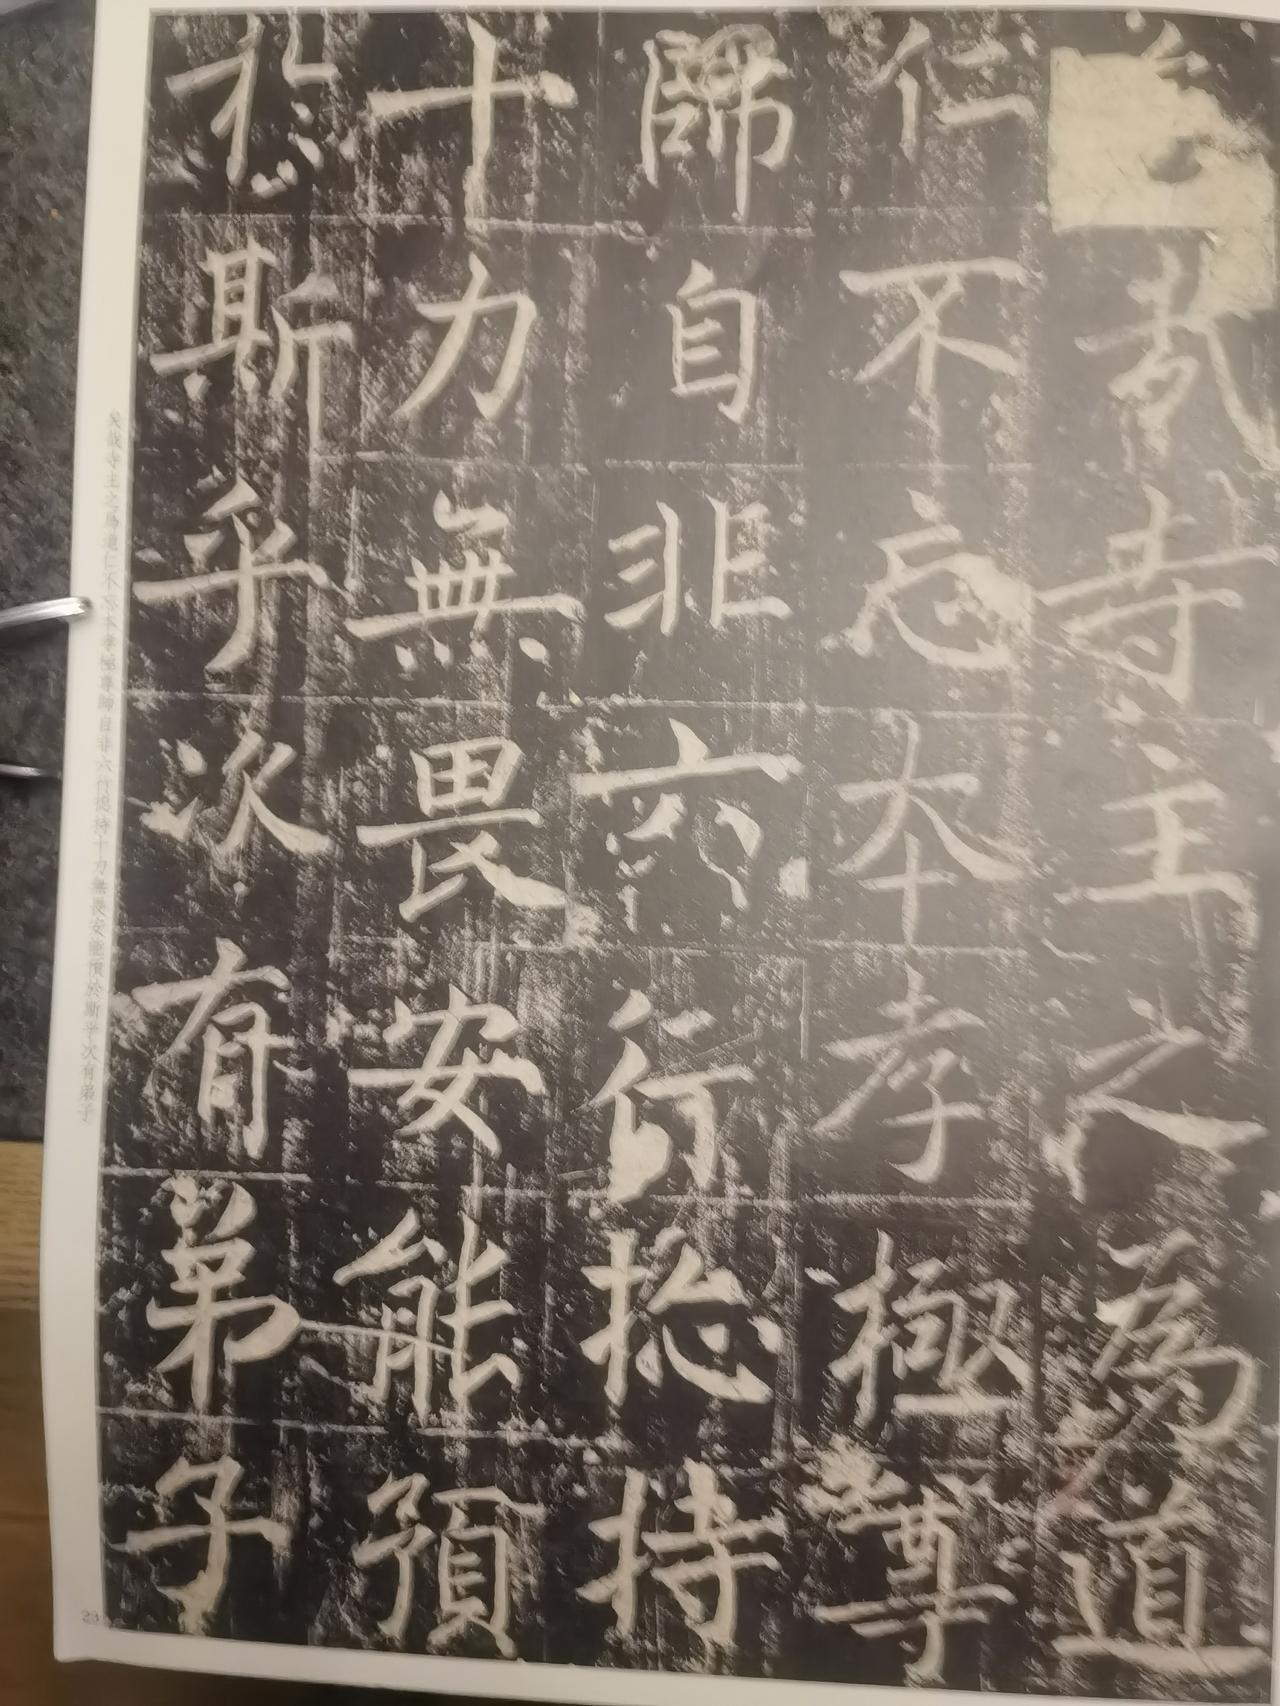 矣哉寺主之為道
仁不忘本孝極尊
師自非六行揔持
十力無畏安能預
於斯乎次有弟子
矣哉寺主之為道仁不忘本孝極尊師自非六行揔持十力無畏安能預於斯乎次有弟子
23